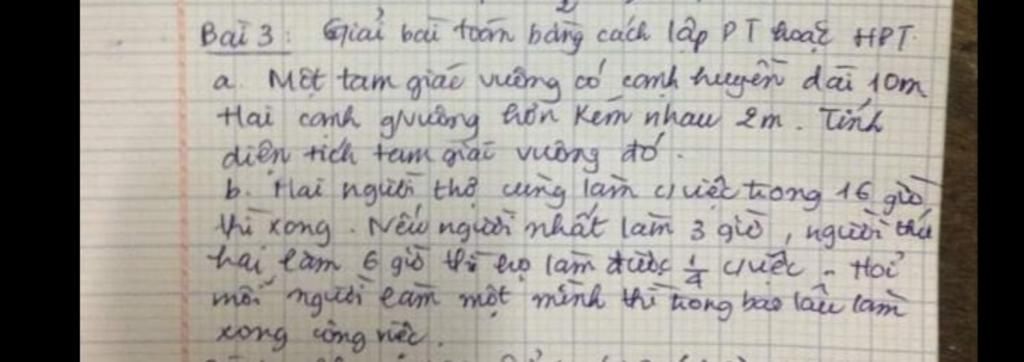 Bài 3: Giải bài toán bằng cách lập PT hoặc HPT.
a. Một tam giác vuông có cạnh huyền dài 10m
Hai cạnh gvuông hơn kém nhau 2m. Tính
diện tích tam giác vuông đó.
b. Hai người thợ cùng làm c/việc trong 16 giờ
thì xong. Nếu người nhất làm 3 giờ, người thứ
hai làm 6 giờ thì họ làm được 1/4 c/việc - Hỏi
mỗi người làm một mình thì trong bao lâu làm
xong công việc.